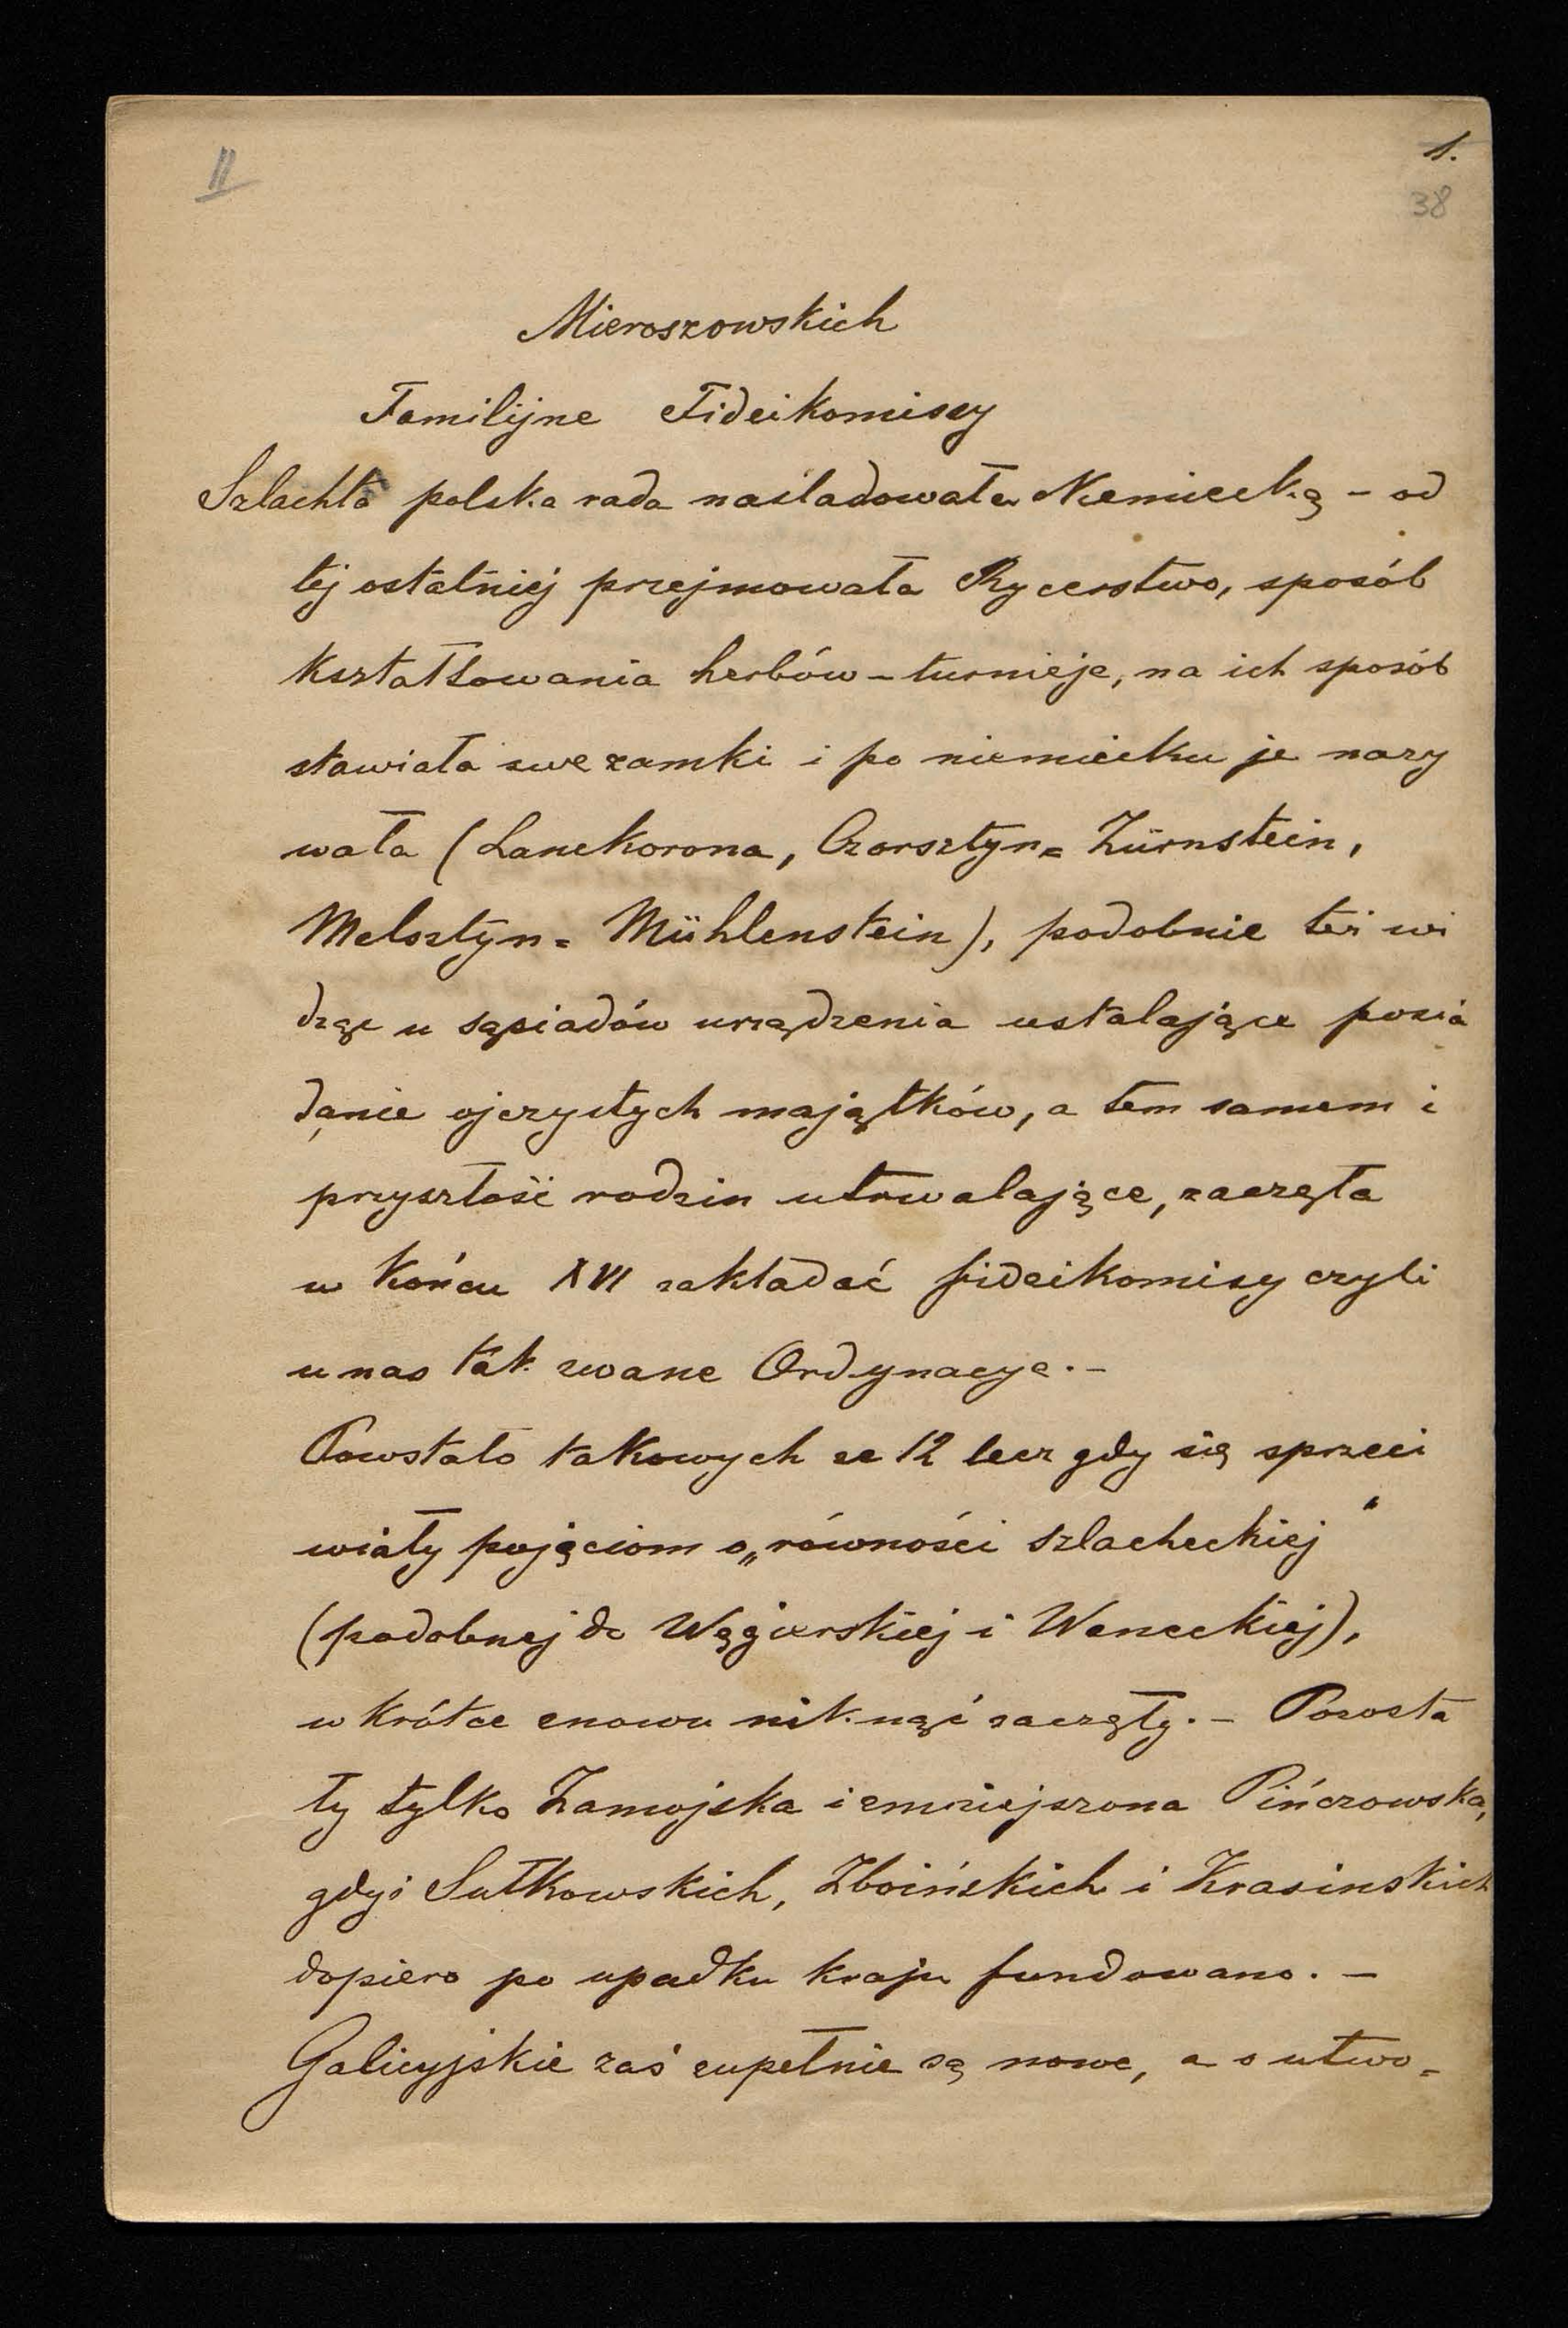 II
1.
38
Mieroszowskich
Familijne Fideikomissy
Szlachta polska rada naśladowała Niemiecką – od
tej ostatniej przejmowała Rycerstwo, sposób
kształtowania herbów – turnieje, na ich sposób
stawiała swe zamki i po niemiecku je nazy
wała (Lanckorona, Czorsztyn = Zürnstein,
Melsztyn = Mühlenstein), podobnie też wi
dząc u sąsiadów urządzenia ustalające posia
danie ojczystych majątków, a tem samem i
przyszłość rodzin utrwalające, zaczęła
w końcu XVI zakładać fideikomisy czyli
u nas tak zwane Ordynacye. –
Powstało takowych ze 12 lecz gdy się sprzeci
wiały pojęciom o „równości szlacheckiej“
(podobnej do Węgierskiej i Weneckiej),
w krótce znowu niknąć zaczęły. – Pozosta
ły tylko Zamojska i zmniejszona Pińczowska,
gdyż Sułkowskich, Zboińskich i Krasinskich
dopiero po upadku kraju fundowano. –
Galicyjskie zaś zupełnie są nowe, a o utwo=